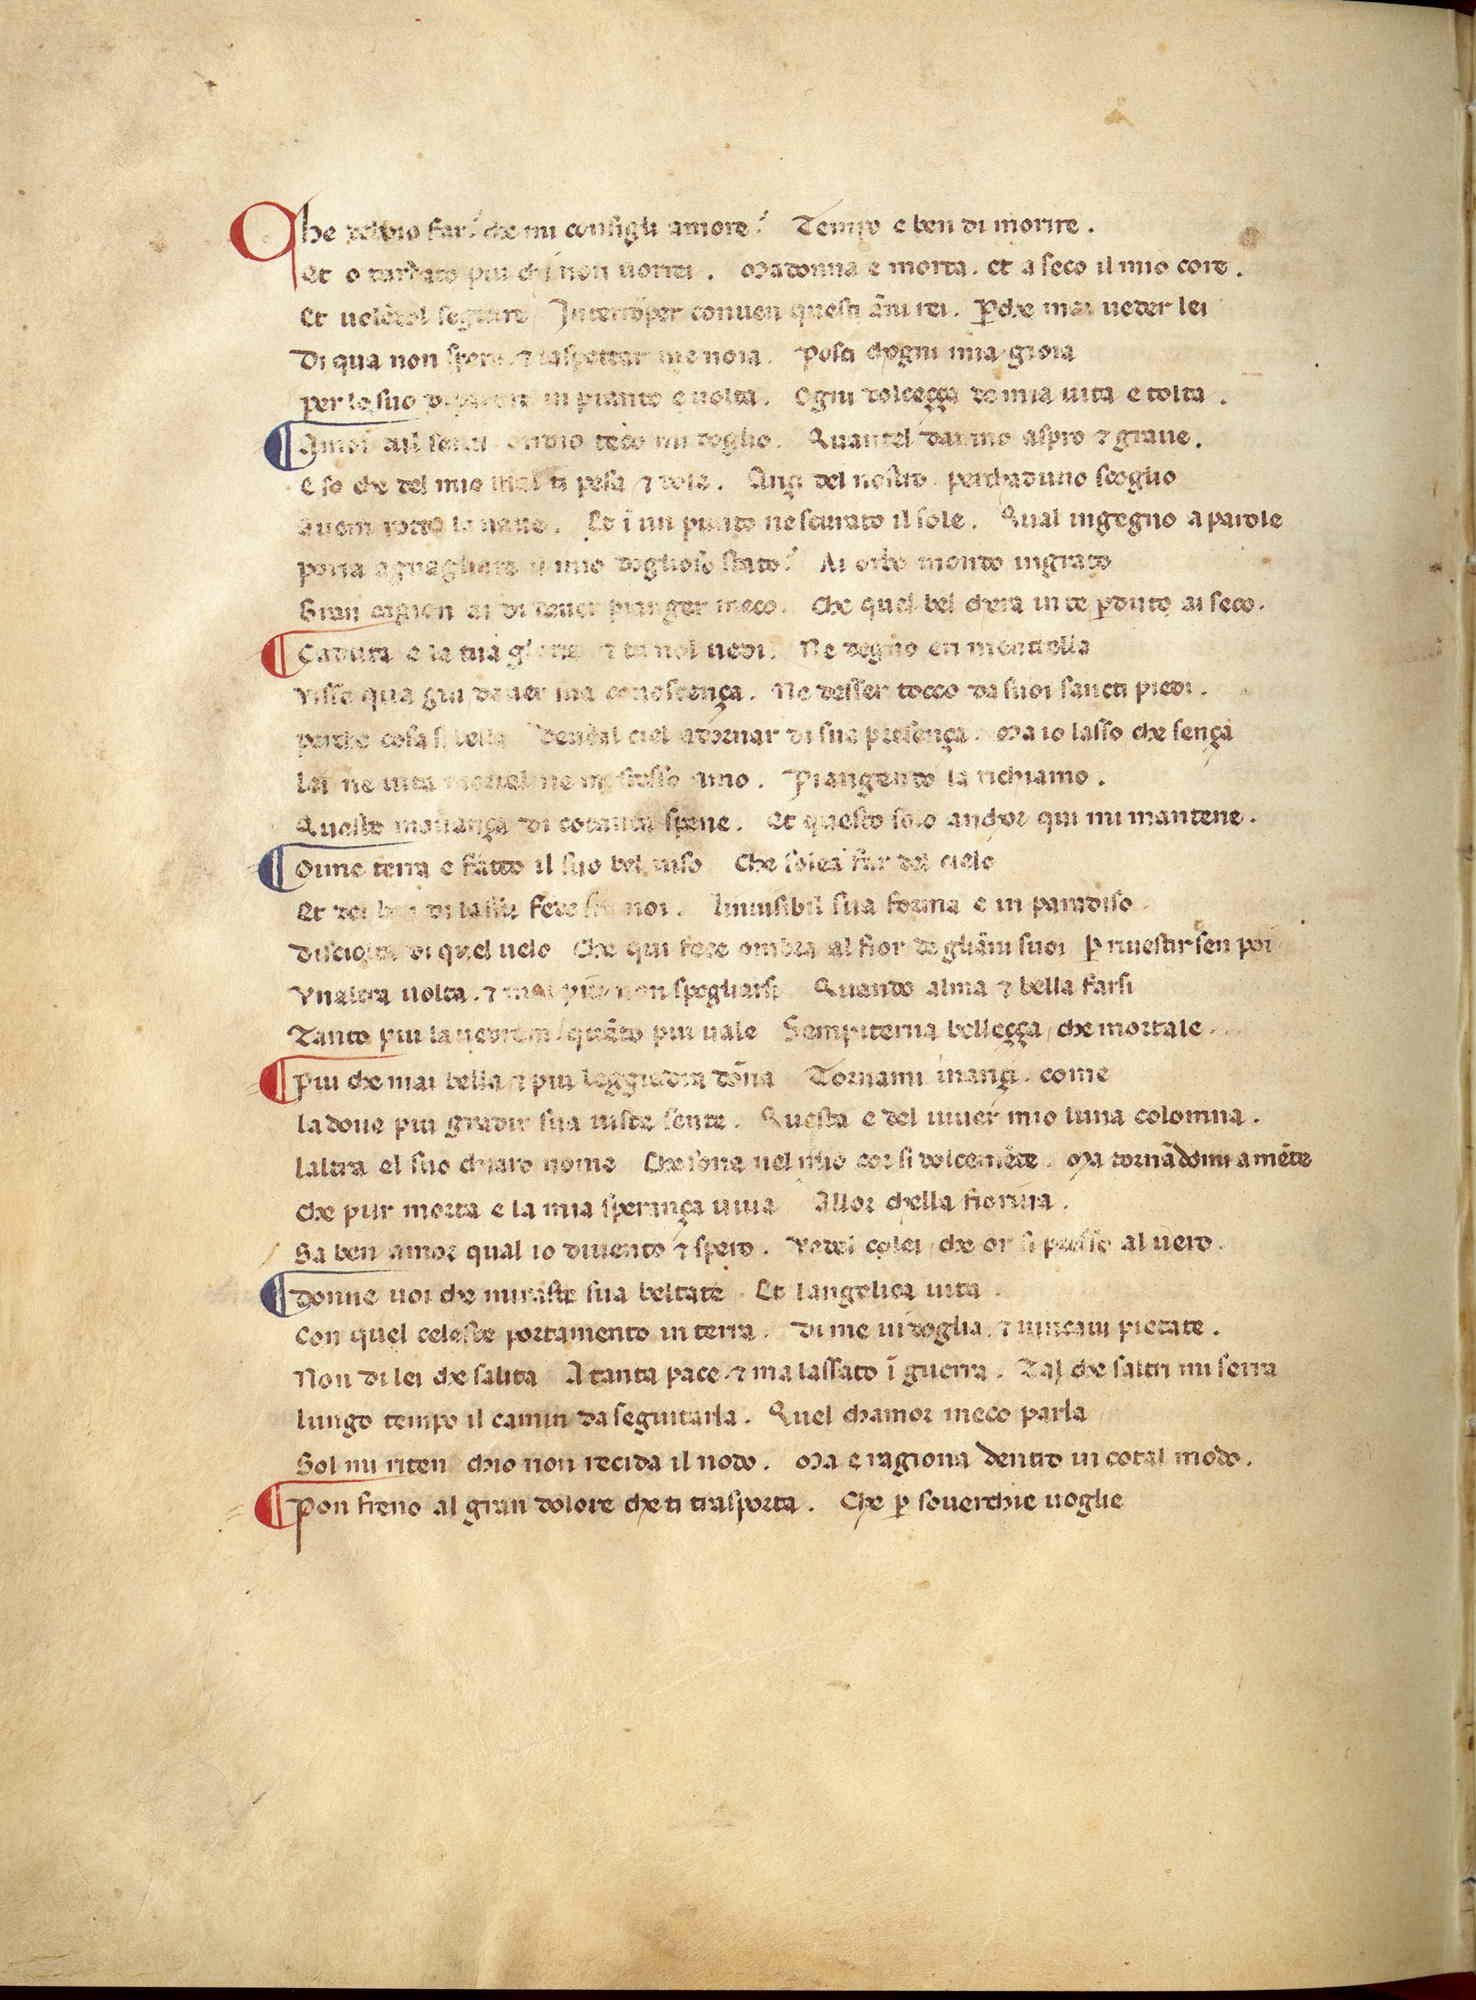 Che debbio far? che mi consigli amore? Tempo e ben di morire.
Et o tardato piu chi non uorrei. Madonna e morta. et a seco il mio core.
Et uolẽdol seguire Interrõper conuen questi ãni rei. P̱che mai ueder lei
Di qua non spero. ⁊ laspettar me noia. Poscia chogni mia gioia
per lo suo dipartire in pianto e uolta. Ogni dolceçça de mia uita e tolta.
Amor tu il senti ondio teco mi doglio. Quantel danno aspro ⁊ graue.
E so che del mio mal ti pesa ⁊ dole. Ançi del nostro. perchaduno scoglio
Auem rotto la naue. Et ĩ un punto ne scurato il sole. Qual ingegno a parole
poria aguagliare il mio doglioso stato? Ai orbo mondo ingrato
Gran cagion ai di deuer pianger meco. Che quel bel chera in te ꝑduto ai seco.
Caduta e la tua gloria ⁊ tu nol uedi. Ne degno eri mentrella
visse qua giu dauer sua conoscença. Ne desser tocco da suoi sancti piedi.
perche cosa si bella Deueal ciel adornar di sua presença. Ma io lasso che sença
lei ne uita mortal ne me stesso amo. Piangendo la richiamo.
Questo mauança di cotanta spene. Et questo solo anchor qui mi mantene.
Oime terra e fatto il suo bel uiso Che solea far del cielo
Et del ben di lassu fede fra noi. Linuisibil sua forma e in paradiso
Disciolta di quel uelo Che qui fece ombra al fior de gliãni suoi ꝑ riuestirsen poi
Vnaltra uolta. ⁊ mai piu non spogliarsi Quando alma ⁊ bella farsi
Tanto piu la uedrem quãto piu uale Sempiterna belleçça che mortale.
Piu che mai bella ⁊ piu leggiadra dõna Tornami inançi. come
la doue piu gradir sua uista sente. Questa e del uiuer mio luna colomna.
laltra el suo chiaro nome Che sona nel mio cor si dolcemẽte. Ma tornãdomi a mẽte
che pur morta e la mia sperança uiua Allor chella fioriua.
Sa ben amor qual io diuento ⁊ spero. Vedel colei che or si presso al uero.
Donne uoi che miraste sua beltate Et langelica uita
Con quel celeste portamento in terra. Di me ui doglia. ⁊ uincaui pietate.
Non di lei che salita A tanta pace ⁊ ma lassato ĩ guerra. Tal che saltri mi serra
lungo tempo il camin da seguitarla. Quel chamor meco parla
Sol mi riten chio non recida il nodo. Ma e ragiona dentro in cotal modo.
Pon freno al gran dolore che ti trasporta. Che ꝑ souerchie uoglie